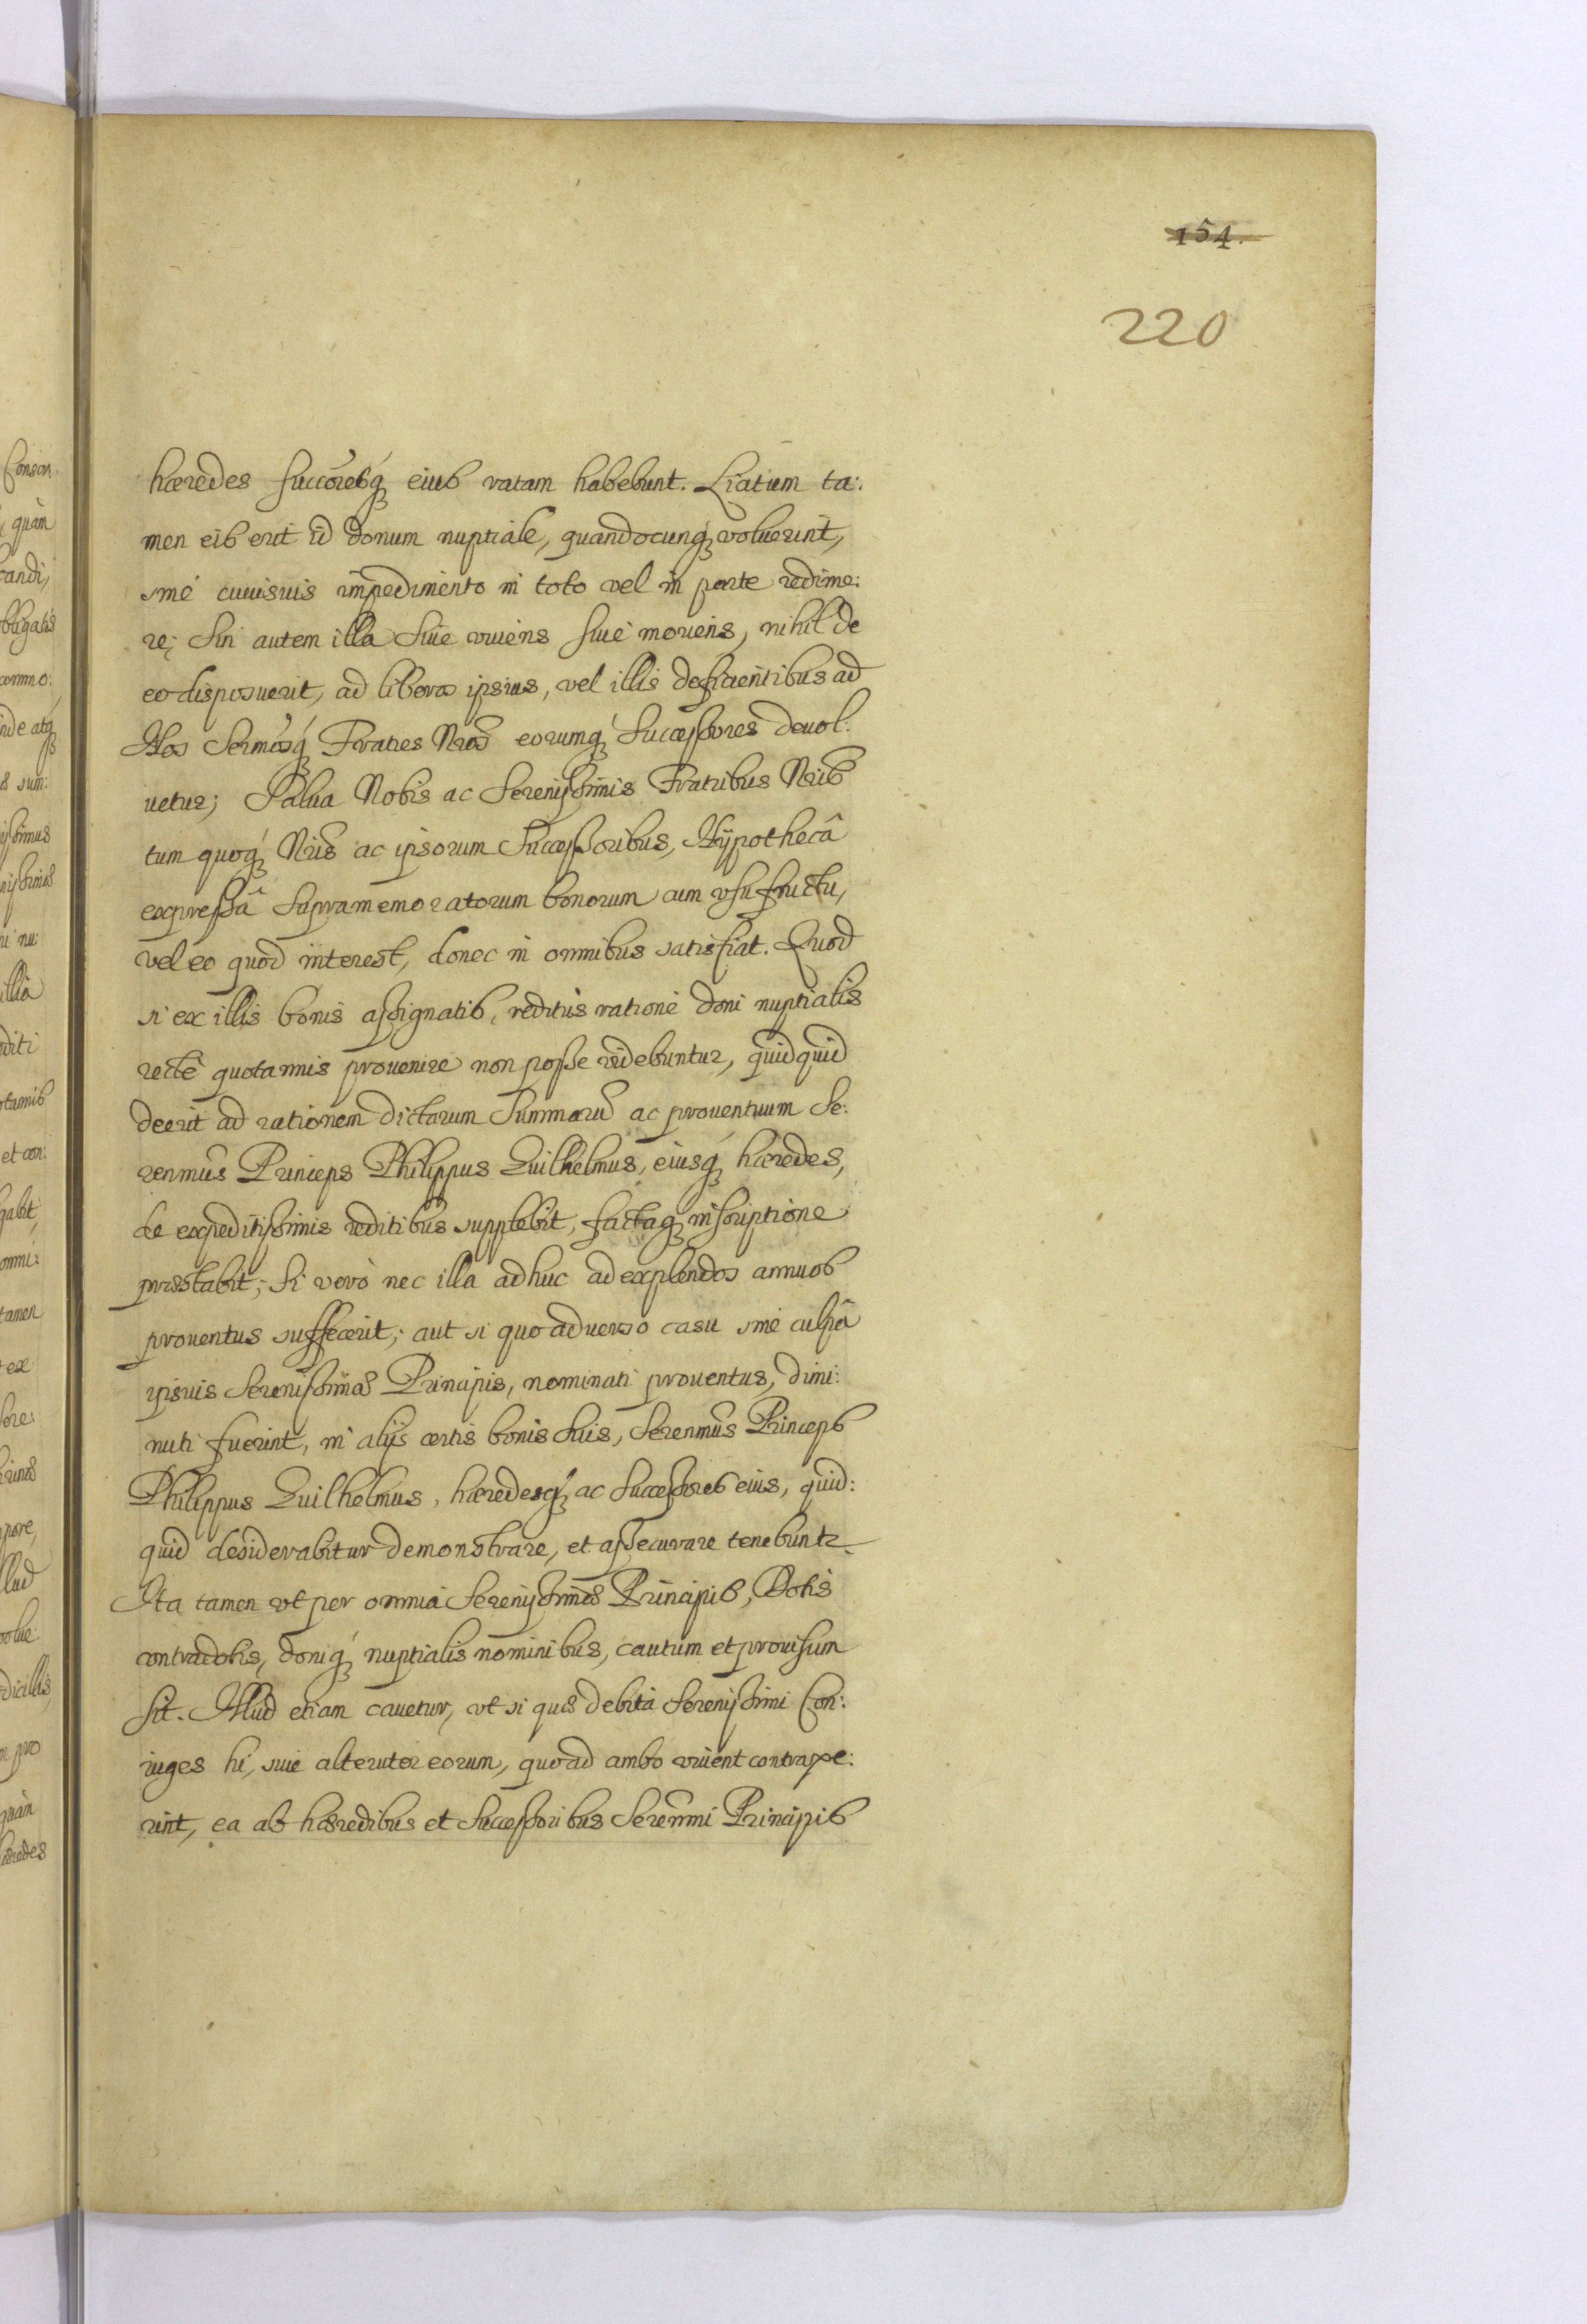 154.
220
hæredes succōresq́ꝫ eius ratam habebunt. Liatum ta:
men eis erit id donum nuptiale, quandocunqꝫ voluerint,
sine cuiusuis impedimento in toto vel in parte redime:
re; Sin autem illa Siue viuens siue moriens, nihil de
eo disposuerit, ad liberos ipsius, vel illis deficientibus ad
Nos Sermosq́ꝫ Fratres Nros eorumq́ꝫ Successores deuol:
uetur; Salua Nobis ac Serenissimis Fratribus Nris
tum quoq́ꝫ Nris ac ipsorum Successoribus, Hypothecâ
expressâ Supramemoratorum bonorum cum vsufructu,
vel eo quod interest, donec in omnibus satisfiat. Quod
si ex illis bonis assignatis, reditus ratione doni nuptialis
rectè quotannis prouenire non posse videbuntur, quidquid
deerit ad rationem dictarum Summarū ac prouentuum Se:
renmus Princeps Philippus Guilhelmus, eiusq́ꝫ hæredes,
de expeditissimis reditibus supplebit, factaqꝫ inscriptione
præstabit; Si verò nec illa adhuc ad explendos annuos
prouentus suffecerit; aut si quo aduerso casu sine culpâ
ipsius Serenissimæ Principis, nominati prouentus, dimi:
nuti fuerint, in alijs certis bonis suis, Serenmus Princeps
Philippus Guilhelmus, hæredesq́ꝫ ac Successores eius, quid:
quid desiderabitur demonstrare, et assecurare tenebuntr
Ita tamen vt per omnia Serenissimæ Principis, Dotis
contradotis, doniq́ꝫ nuptialis nominibus, cautum et prouisum
sit. Illud etiam cauetur, vt si quæ debita Serenissimi Con:
iuges hi, siue alteruter eorum, quoad ambo viuent contraxe:
rint, ea ab hæredibus et Successoribus Serenmi Principis